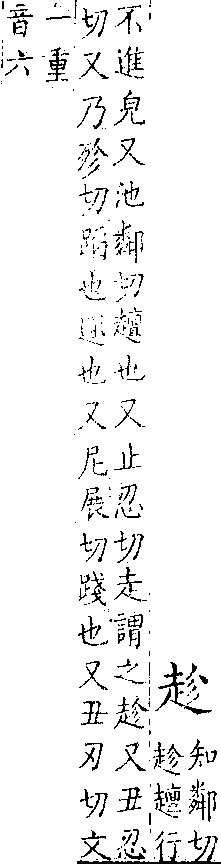 趁
知鄰切
趁䞾行
不進皃又池鄰切䞾也又止忍切走謂之趁又丑忍
切又乃殄切蹈也逐也又尼展切踐也又丑刃切文
一重
音六